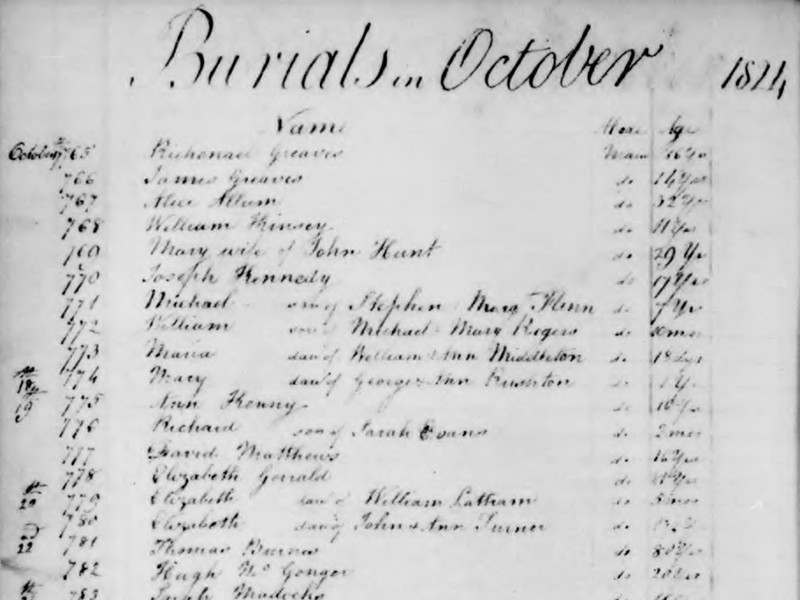 Burials in October 1824
Name Age
October 765 Greaves
766 James Greaves do 14 Yrs
767 Alice Allum do 32 Yrs
768 William Kinsey do 11 Yrs
769 Mary wife of John Hunt do 29 Yrs
770 Joseph Kennedy do 17 Yrs
771 Michael son of Stephen Mary Flinn do 7 Yrs
772 William son of Michael Mary Rogers do 10 mos
773 Maria daur of William & Ann Middleton do
18th 774 Mary daur of George & Ann Rushton do 1 Y
19 775 Ann Kenny do
776 Richard son of Sarah Evans do 2 mos
777 David Matthews do 16 Yrs
778 Elizabeth Gerrald do
20th 779 Elizabeth daur of William Latham do 5 mos
780 Elizabeth daur of John & Ann Turner do
22nd 781 Thomas Burns do 80 Yrs
782 Hugh Mc Gongor do 20 Yrs
783 Sarah